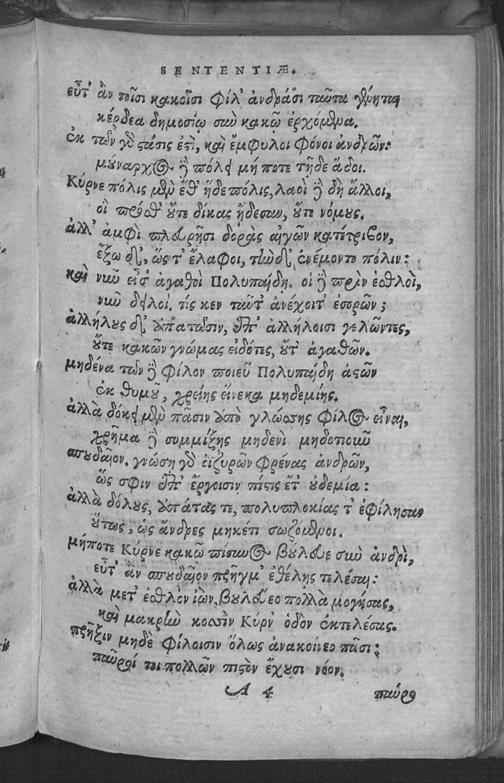 SENTENTIÆ.
εὖτ' ἂν τοῖσι κακοῖσι φίλ' ἀνδράσι ταῦτα γένηται
κέρδεα δημοσίῳ σὺν κακῷ ἐρχόμενα.
ἐκ τῶν γὸ στάσις ἐστὶ, καὶ ἔμφυλοι φόνοι ἀνδρῶν:
μούναρχος δὲ πόλει μή ποτε τῇδε ἅδοι.
Κύρνε πόλις μὲν ἔθ' ἥδε πόλις, λαοὶ δὲ δὴ ἄλλοι,
οἳ πρόσθ' οὔτε δίκας ᾔδεσαν, οὔτε νόμους.
ἀλλ' ἀμφὶ πλευρῇσι δορὰς αἰγῶν κατέτριβον,
ἔξω δ', ὥστ' ἔλαφοι, τήνδ' ἐνέμοντο πόλιν:
καὶ νῦν εἰσ' ἀγαθοὶ Πολυπαΐδη. οἱ δὲ πρὶν ἐσθλοὶ,
νῦν δειλοί, τίς κεν ταῦτ' ἀνέχοιτ' ἐσορῶν;
ἀλλήλους δ' ἀπατῶσιν, ἐπ' ἀλλήλοισι γελῶντες,
οὔτε κακῶν γνώμας εἰδότες, οὔτ' ἀγαθῶν.
μηδένα τῶνδε φίλον ποιεῦ Πολυπαΐδη ἀστῶν
ἐκ θυμοῦ, χρείης εἵνεκα μηδεμίης.
ἀλλὰ δόκει μὲν πᾶσιν ἀπὸ γλώσσης φίλος εἶναι,
χρῆμα δὲ συμμίξῃς μηδενὶ μηδοτιοῦν
σπουδαῖον. γνώσῃ γὸ οἰζυρῶν φρένας ἀνδρῶν,
ὥς σφιν ἐπ' ἔργοισιν πίστις ἔτ' οὐδεμία:
ἀλλὰ δόλους, ἀπάτας τε, πολυπλοκίας τ' ἐφίλησαν
οὕτως, ὡς ἄνδρες μηκέτι σωζόμενοι.
μήποτε Κύρνε κακῷ πίσυνος βούλευε σὺν ἀνδρὶ,
εὖτ' ἂν σπουδαῖον πρῆγμ' ἐθέλῃς τελέσαι:
ἀλλὰ μετ' ἐσθλὸν ἰὼν, βουλεύεο πολλὰ μογήσας,
καὶ μακρὴν ποσσὶν Κύρν' ὁδὸν ἐκτελέσας.
πρῆξιν μηδὲ φίλοισιν ὅλως ἀνακοίνεο πᾶσι:
παῦροί τοι πολλῶν πιστὸν ἔχουσι νόον.
A 4 παῦρο